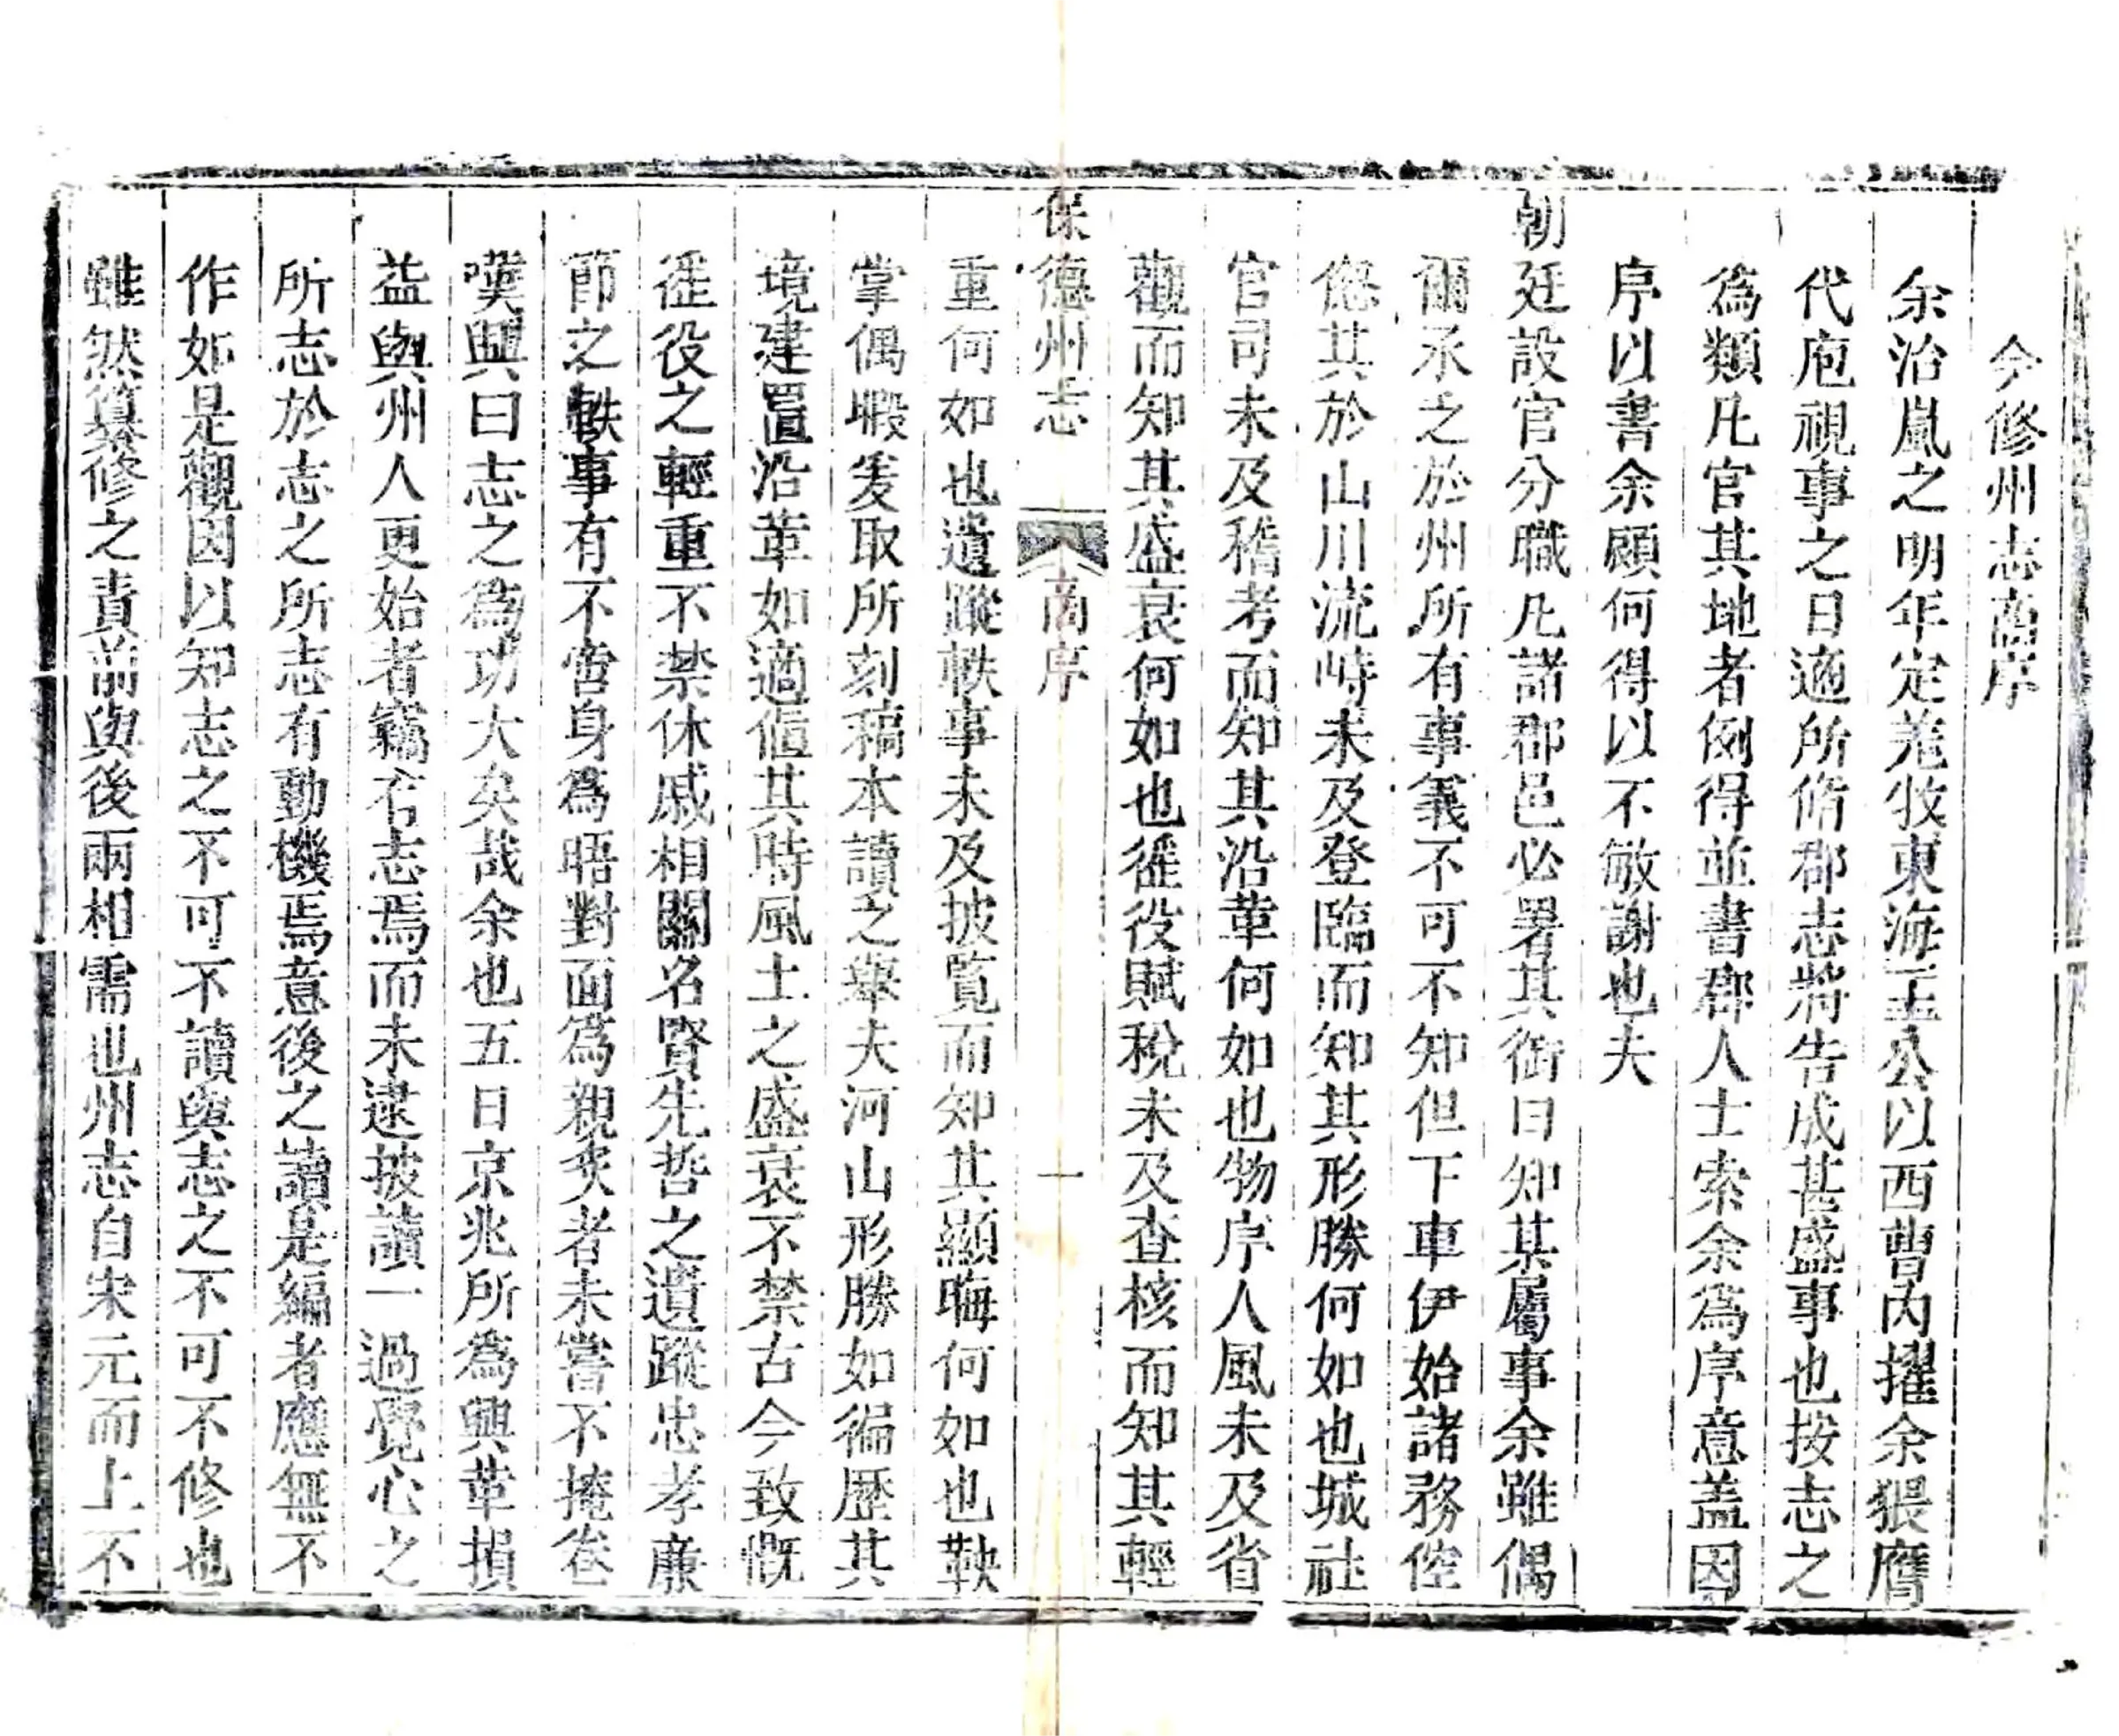 今修州志商序
余治嵐之明年定羌牧東海王公以西曹內擢余猥膺
代庖視事之日適所脩郡志將告成甚盛事也按志之
為類凡官其地者例得並書郡人士索余為序意盖因
序以書余顧何得以不敏謝也夫
朝廷設官分職凡諸郡邑必署其銜曰知某屬事余雖偶
爾承之於州所有事義不可不知但下車伊始諸務倥
傯其於山川流峙未及登臨而知其形勝何如也城社
官司未及稽考而知其沿革何如也物序人風未及省
觀而知其盛衰何如也徭役賦稅未及查核而知其輕
保德州志 商序 一
重何如也遺蹤軼事未及披覧而知其顯晦何如也鞅
掌偶暇爰取所刻稿本讀之舉夫河山形勝如徧歷其
境建置沿革如適值其時風土之盛衰不禁古今致慨
徭役之輕重不禁休戚相關名賢先哲之遺蹤忠孝廉
節之軼事有不啻身為晤對面為親炙者未嘗不掩卷
嘆興曰志之為功大矣哉余也五日京兆所為興革損
益與州人更始者竊有志焉而未逮披讀一過覺心之
所志於志之所志有動機焉意後之讀是編者應無不
作如是觀因以知志之不可不讀與志之不可不修也
雖然纂修之責前與後兩相需也州志自宋元而上不